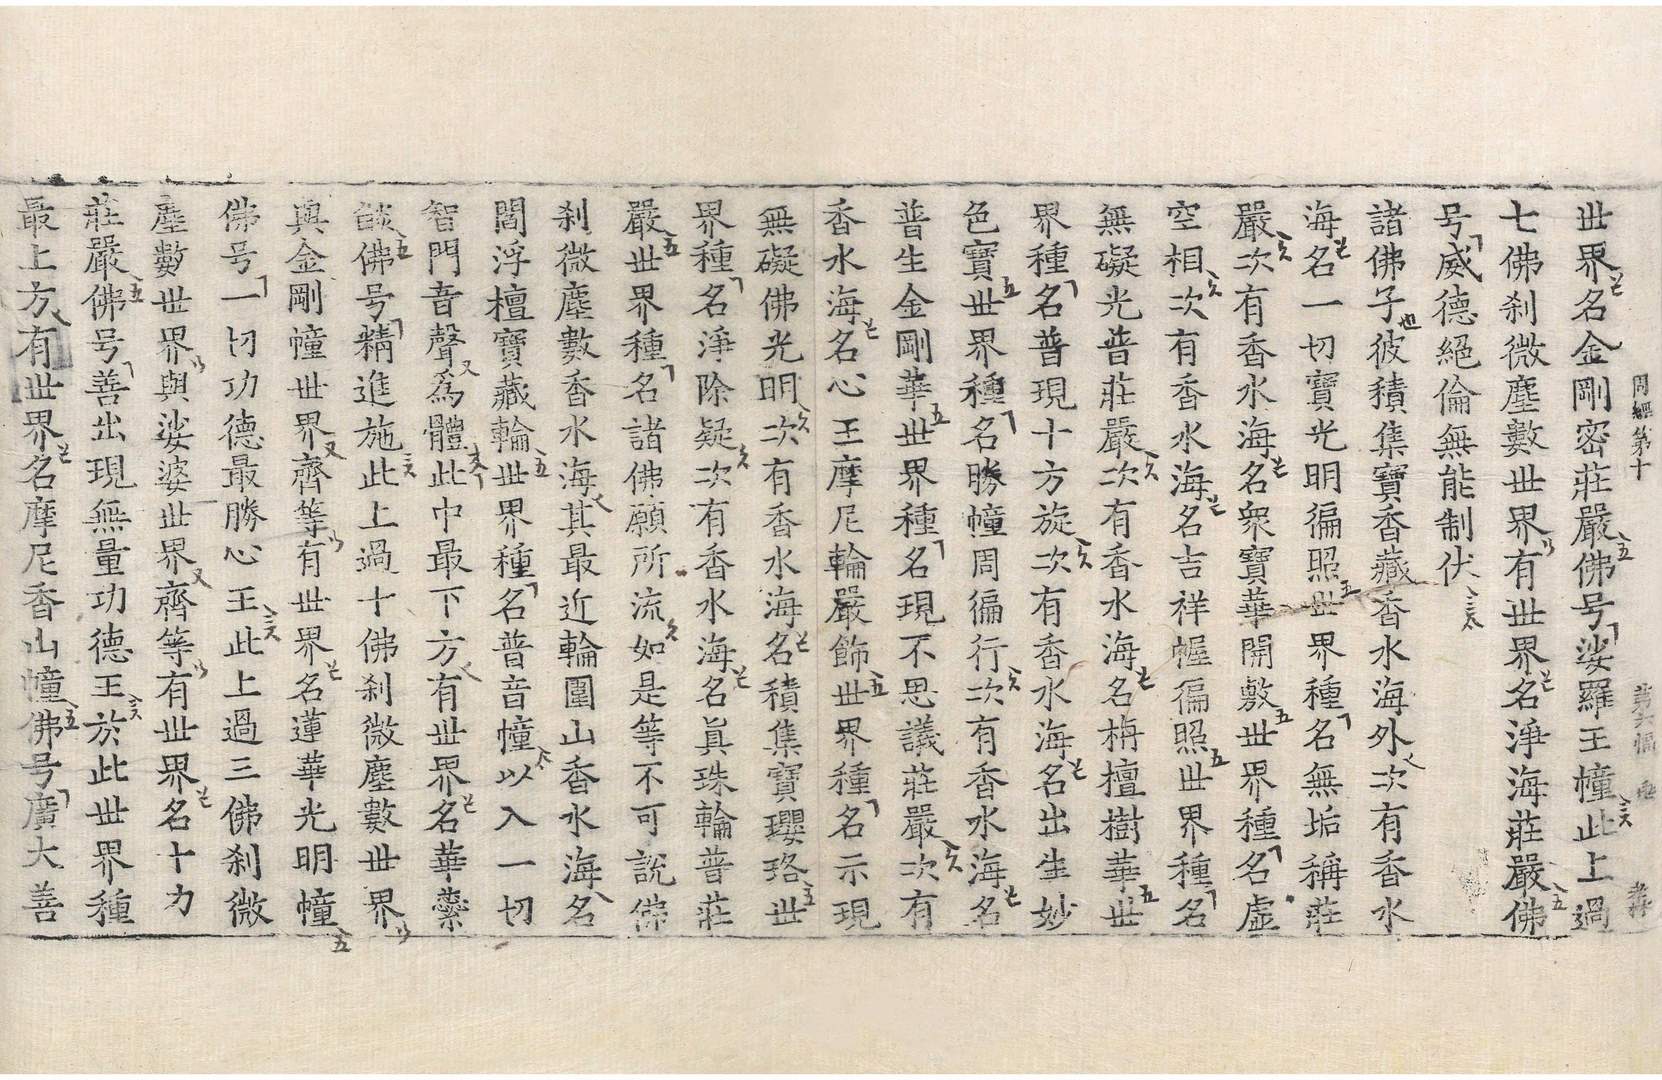 周經第十
世界名金剛密莊嚴佛号娑羅王幢此上過
七佛刹微塵數世界有世界名淨海莊嚴佛
号威德絕倫無能制伏
諸佛子彼積集寶香藏香水海外次有香水
海名一切寶光明徧照世界種名無垢稱莊
嚴次有香水海名衆寶華開敷世界種名虛
空相次有香水海名吉祥幄徧照世界種名
無礙光普莊嚴次有香水海名栴檀樹華世
界種名普現十方旋次有香水海名出生妙
色寶世界種名勝幢周徧行次有香水海名
普生金剛華世界種名現不思議莊嚴次有
香水海名心王摩尼輪嚴飾世界種名示現
無礙佛光明次有香水海名積集寶瓔珞世
界種名淨除疑次有香水海名眞珠輪普莊
嚴世界種名諸佛願所流如是等不可說佛
刹微塵數香水海其最近輪圍山香水海名
閻浮檀寶藏輪世界種名普音幢以入一切
智門音聲爲體此中最下方有世界名華蘂
燄佛号精進施此上過十佛刹微塵數世界
與金剛幢世界齊等有世界名蓮華光明幢
佛号一切功德最勝心王此上過三佛刹微
塵數世界與娑婆世界齊等有世界名十力
莊嚴佛号善出現無量功德王於此世界種
最上方有世界名摩尼香山幢佛号廣大善